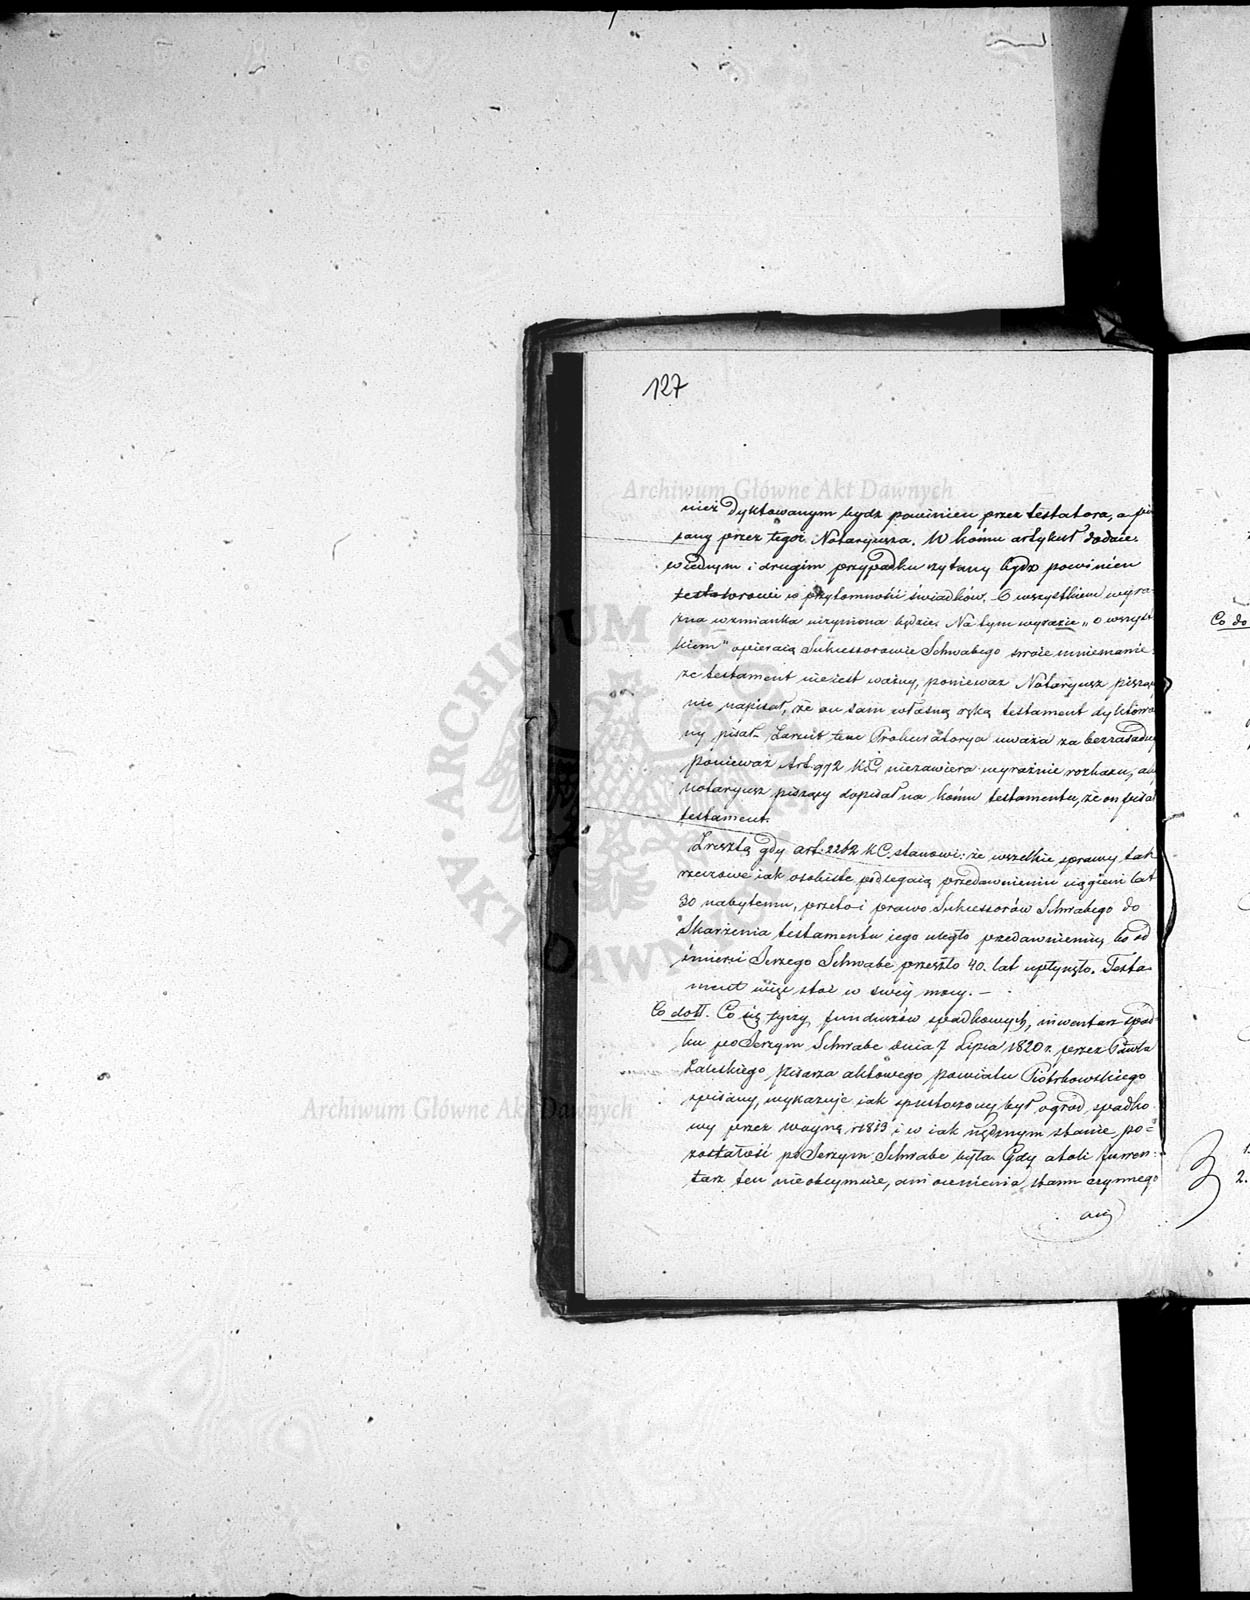 127
Archiwum Główne Akt Dawnych
nież dyktowanym bydz powinien przez testatora, a pi
sany przez tegoż Notaryusza. W końcu artykuł dodaie:
w iednym i drugim przypadku czytany bydz powinien
testatorowi w przytomności świadków. O wszystkiem wyra-
zna wzmianka uczyniona będzie. Na tym wyrazie „o wszyst
kiem" opieraią Sukcessorowie Schwabego swoie mniemanie
ze testament nieiest ważny, ponieważ Notaryusz piszący
nie napisał, że on sam własną ręką testament dyktowa
ny pisał. Zarzut ten Prokuratorya uważa za bezzasadny
ponieważ Art. 972 K.C. niezawiera wyraźnie rozkazu, aby
notaryusz piszący dopisał na końcu testamentu, że on pisał
testament.
Zresztą gdy art. 2262 K.C. stanowi: że wszelkie sprawy tak
rzeczowe iak osobiste podlegaią przedawnieniu ciągiem lat
30 nabytemu, przeto i prawo Sukcessorów Schwabego do
Skarżenia testamentu iego uległo przedawnieniu, bo od
śmierci Jerzego Schwabe przeszło 40. lat upłynęło. Testa-
ment więc stoi w swéy mocy. —
Co do II. Co się tyczy funduszów spadkowych, inwentarz spad
ku po Jerzym Schwabe dnia 7 Lipca 1820 r. przez Pawła
Zaleskiego Pisarza aktowego powiatu Piotrkowskiego
spisany, wykazuje iak spustoszony był ogród spadko
wy przez woynę r. 1813 i w iak nędznym stanie po-
zostałość po Jerzym Schwabe była. Gdy atoli Inwen-
tarz ten nieobeymuie, ani ocenienia, stanu czynnego
ani
ARCHIWUM GŁÓWNE AKT DAWNYCH
Archiwum Główne Akt Dawnych
Co do
2.